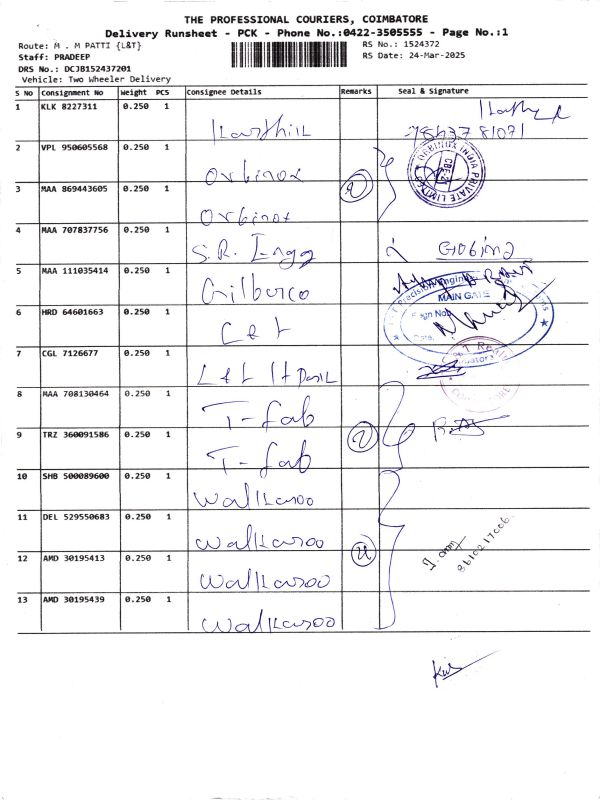 THE PROFESSIONAL COURIERS, COIMBATORE
Delivery Runsheet - PCK - Phone No.:0422-3505555 - Page No.:1
Route: M . M PATTI {L&T} RS No.: 1524372
Staff: PRADEEP RS Date: 24-Mar-2025
DRS No.: DCJB152437201
Vehicle: Two Wheeler Delivery
S NO Consignment No Weight PCS Consignee Details Remarks Seal & Signature
1 KLK 8227311 0.250 1 Karthik
2 VPL 950605568 0.250 1 Orbinox
ORBINOX INDIA PRIVATE LIMITED
3 MAA 869443605 0.250 1 Orbinox 2
4 MAA 707837756 0.250 1 S.R. Engg
5 MAA 111035414 0.250 1 Gilbarco
MAIN GATE
6 HRD 64601663 0.250 1 L & T
7 CGL 7126677 0.250 1 L & T
8 MAA 708130464 0.250 1 T-fab
9 TRZ 360091586 0.250 1 T-fab 2
10 SHB 500089600 0.250 1 Walkaroo
11 DEL 529550683 0.250 1 Walkaroo
8610217006
12 AMD 30195413 0.250 1 Walkaroo 4
13 AMD 30195439 0.250 1 Walkaroo